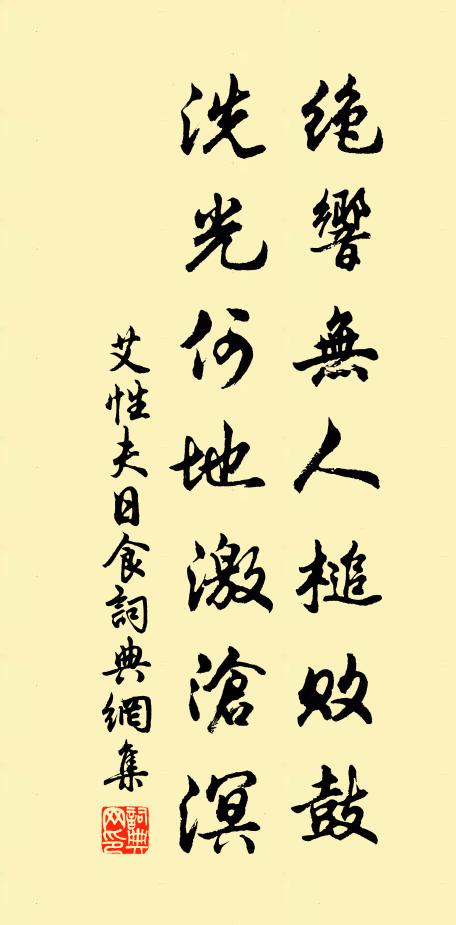 絶響無人槌敗鼓
洗光何地激滄溟
艾性夫日食詞典網集
詞典網印